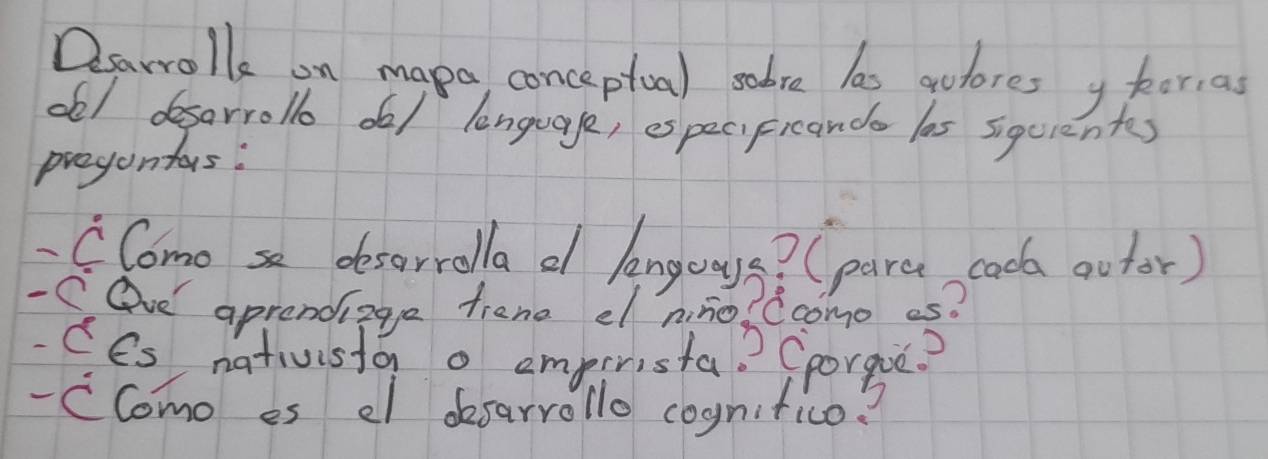 Desarrolle un mapa conceptual sobre los autores y teorias
del desarrollo del lenguaje, especificando los siguientes
preguntas:
- ¿Cómo se desarrolla el lenguaje? (para cada autor)
- ¿Qué aprendizaje tiene el niño? ¿cómo es?
- ¿Es nativista o empirista? ¿porqué?
- ¿Cómo es el desarrollo cognitivo?